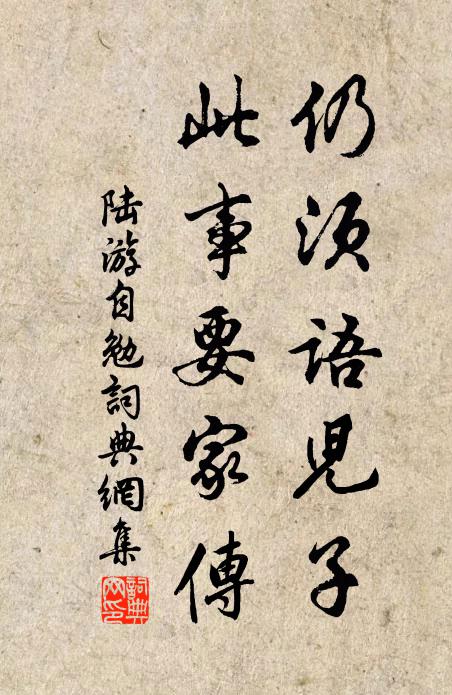 仍須語兒子
此事要家傳
陸游自勉詞典網集
詞典網印